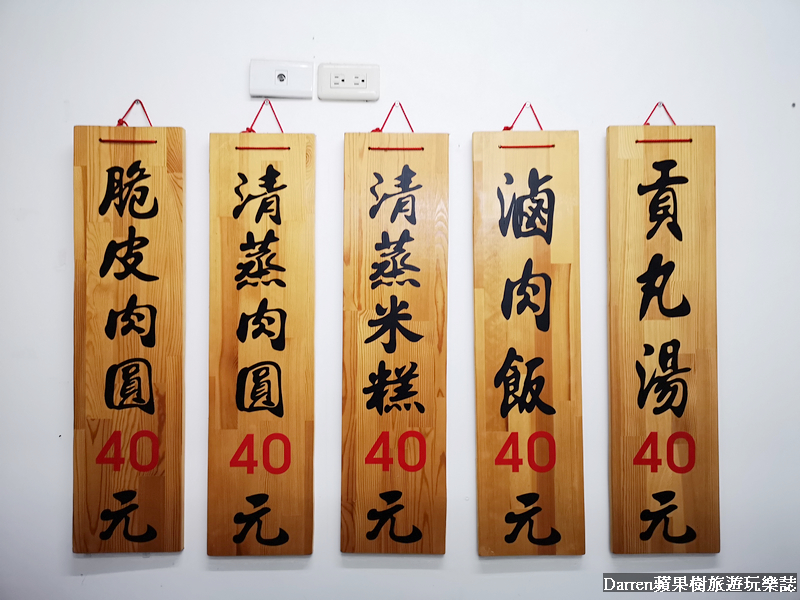 脆皮肉圓40元
清蒸肉圓40元
清蒸米糕40元
滷肉飯40元
貢丸湯40元
Darren蘋果樹旅遊玩樂誌